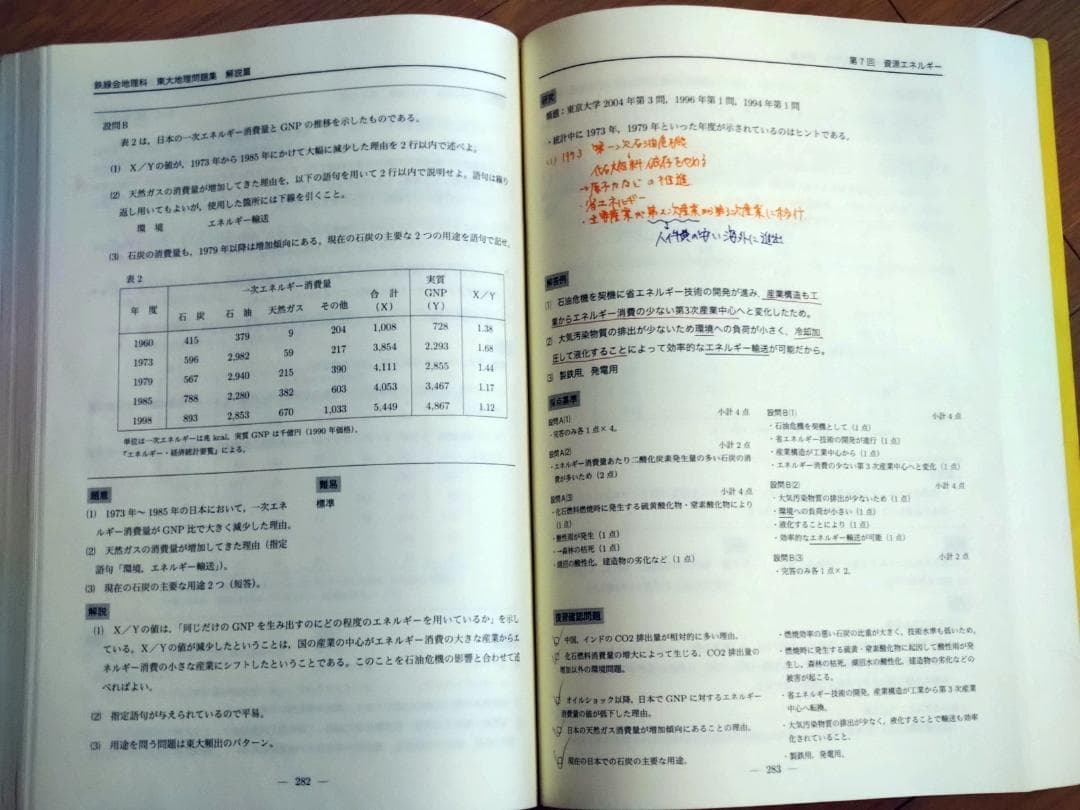 鉄緑会地理科 東大地理問題集 解説篇
設問B
表2は，日本の一次エネルギー消費量とGNPの推移を示したものである。
(1) X／Yの値が，1973年から1985年にかけて大幅に減少した理由を2行以内で述べよ。
(2) 天然ガスの消費量が増加してきた理由を，以下の語句を用いて2行以内で説明せよ。語句は繰り
返し用いてもよいが，使用した箇所には下線を引くこと。
環 境 エネルギー輸送
(3) 石炭の消費量も，1979年以降は増加傾向にある。現在の石炭の主要な2つの用途を語句で記せ。
表2
年 度 一次エネルギー消費量 合 計 (X) 実質 GNP (Y) X／Y
石 炭 石 油 天然ガス その他
1960 415 379 9 204 1,008 728 1.38
1973 596 2,982 59 217 3,854 2,293 1.68
1979 567 2,940 215 390 4,111 2,855 1.44
1985 788 2,280 382 603 4,053 3,467 1.17
1998 893 2,853 670 1,033 5,449 4,867 1.12
単位は一次エネルギーは兆kcal，実質GNPは千億円（1990年価格）。
『エネルギー・経済統計要覧』による。
題意
(1) 1973年～1985年の日本において，一次エネ
ルギー消費量がGNP比で大きく減少した理由。
(2) 天然ガスの消費量が増加してきた理由（指定
語句「環境，エネルギー輸送」）。
(3) 現在の石炭の主要な用途2つ（短答）。
難易
標準
解説
(1) X／Yの値は，「同じだけのGNPを生み出すのにどの程度のエネルギーを用いているか」を示し
ている。X／Yの値が減少したということは，国の産業の中心がエネルギー消費の大きな産業からエ
ネルギー消費の小さな産業にシフトしたということである。このことを石油危機の影響と合わせて述
べればよい。
(2) 指定語句が与えられているので平易。
(3) 用途を問う問題は東大頻出のパターン。
― 282 ―
第7回 資源エネルギー
研究
類題：東京大学2004年第3問，1996年第1問，1994年第1問
・統計中に1973年，1979年といった年度が示されているのはヒントである。
(1) 1973 第一次石油危機
化石燃料依存をやめる
→原子力などの推進
・省エネルギー
・主要産業が第二次産業から第3次産業に移行
人件費の安い海外に進出
解答例
(1) 石油危機を契機に省エネルギー技術の開発が進み，産業構造も工
業からエネルギー消費の少ない第3次産業中心へと変化したため。
(2) 大気汚染物質の排出が少ないため環境への負荷が小さく，冷却加
圧して液化することによって効率的なエネルギー輸送が可能だから。
(3) 製鉄用，発電用
採点基準
設問A(1) 小計4点
・完答のみ各1点×4。
設問A(2) 小計2点
・エネルギー消費量あたり二酸化炭素発生量の多い石炭の消
費が多いため（2点）
設問A(3) 小計4点
・化石燃料燃焼時に発生する硫黄酸化物・窒素酸化物により
（1点）
・酸性雨が発生（1点）
・→森林の枯死（1点）
・湖沼の酸性化，建造物の劣化など（1点）
設問B(1) 小計4点
・石油危機を契機として（1点）
・省エネルギー技術の開発が進行（1点）
・産業構造が工業中心から（1点）
・エネルギー消費の少ない第3次産業中心へと変化（1点）
設問B(2) 小計4点
・大気汚染物質の排出が少ないため（1点）
・環境への負荷が小さい（1点）
・液化することにより（1点）
・効率的なエネルギー輸送が可能（1点）
設問B(3) 小計2点
・完答のみ各1点×2。
復習確認問題
中国，インドのCO2排出量が相対的に多い理由。
化石燃料消費量の増大によって生じる，CO2排出量の
増加以外の環境問題。
オイルショック以降，日本でGNPに対するエネルギー
消費量の値が低下した理由。
日本の天然ガス消費量が増加傾向にあることの理由。
現在の日本での石炭の主要な用途。
・燃焼効率の悪い石炭の比重が大きく，技術水準も低いため。
・燃焼時に発生する硫黄・窒素酸化物に起因して酸性雨が発
生し，森林の枯死，湖沼水の酸性化，建造物の劣化などの
被害が起こる。
・省エネルギー技術の開発，産業構造が工業から第3次産業
中心へ転換。
・大気汚染物質の排出が少なく，液化することで輸送も効率
化されていること。
・製鉄用，発電用。
― 283 ―